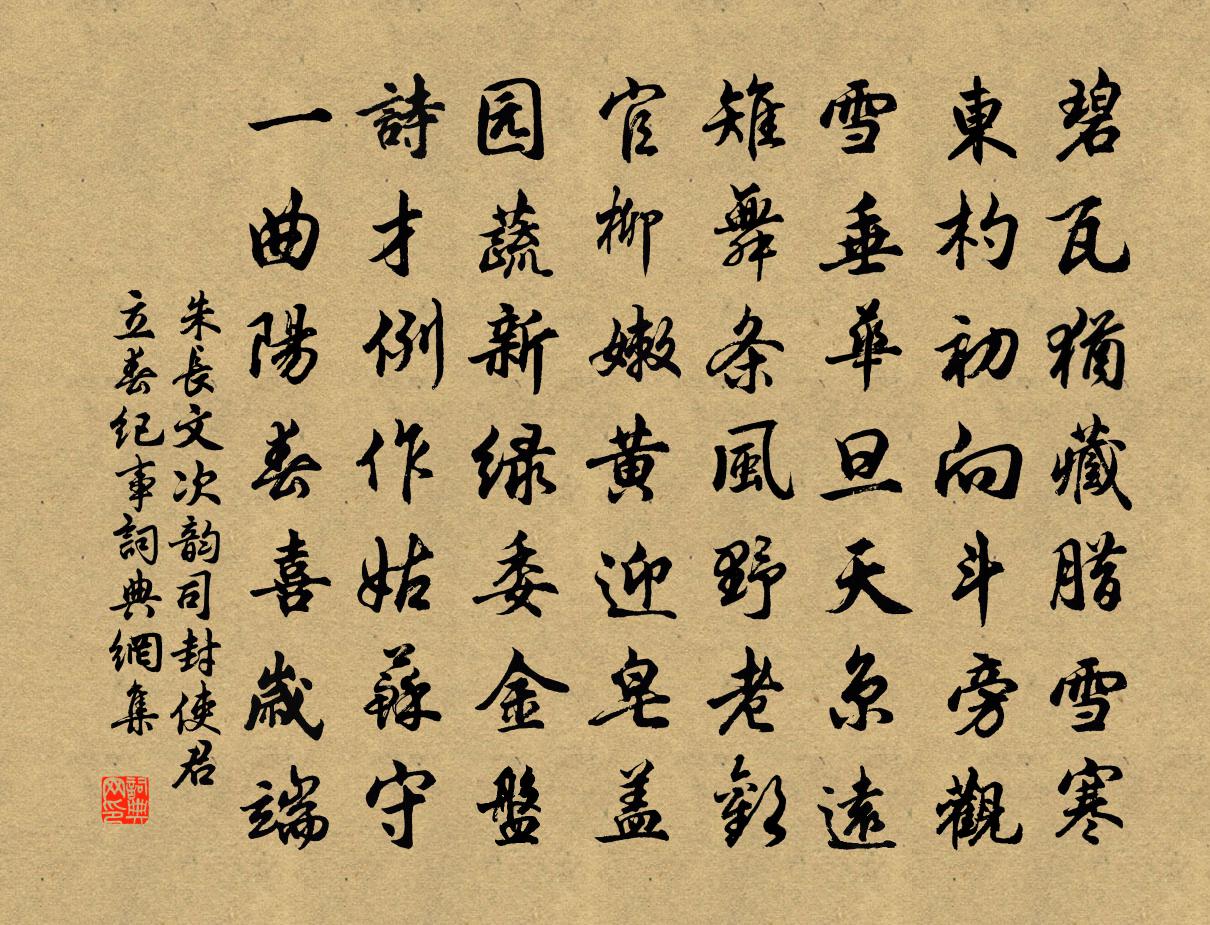 碧瓦猶藏腊雪寒
東杓初向斗旁觀
雪垂華旦天京遠
雉舞条風野老歡
官柳嫩黄迎皂盖
园蔬新绿委金盤
詩才例作姑蘇守
一曲陽春喜歲端
朱長文次韵司封使君
立春纪事詞典網集
詞典网印